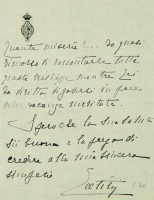 Quante miserie!... ho quasi
rimorso di raccontarle tutte
queste tristezze mentre Lei
ha diritto di godersi in pace
le vacanze meritate.
Spero che la sua salute
sia buona e la prego di
credere alla mia sincera
simpatia